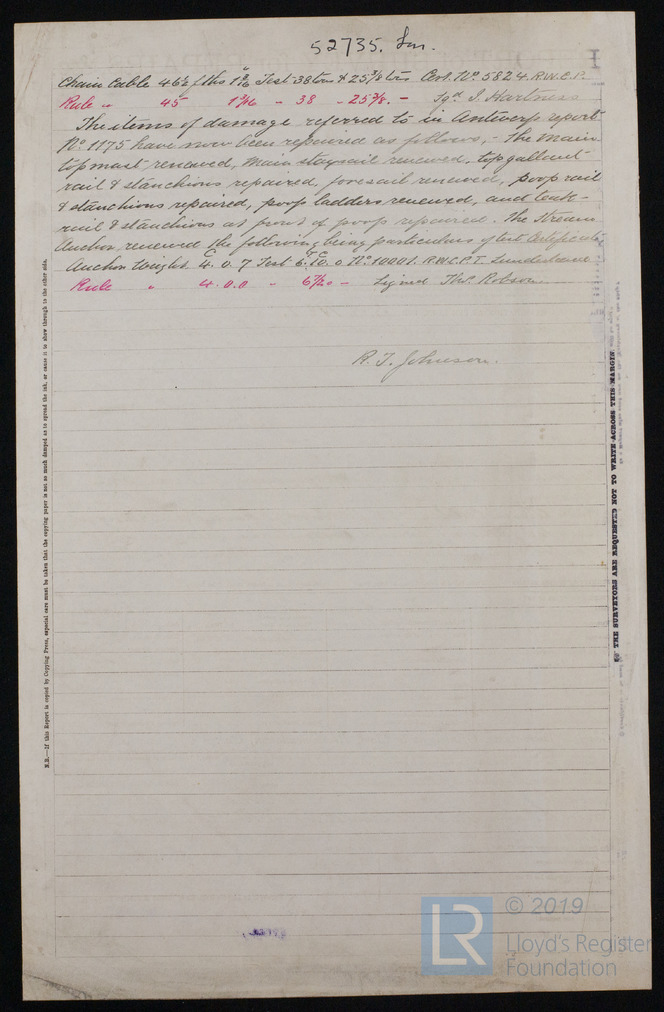 52735. Lon.
Chain Cable 46½ fths 1 3/16" Test 38 tons & 25 3/8 tons Cert. No 5824. R.W.C.P.
Rule " 45 1 3/16 " 38 " 25 3/8. - Sgd. J. Hartness
The items of damage referred to in Antwerp report
No. 1175 have now been repaired as follows, - The Main
topmast renewed, Main staysail renewed, topgallant
rail & stanchions repaired, foresail renewed, poop rail
& stanchions repaired, poop ladders renewed, and teak
rail & stanchions at front of poop repaired. The Stream
Anchor renewed the following being particulars of test Certificate
Anchor Weight 4. 0. 7 Test 6. 10. 0 No. 10001. R.W.C.P.T. Sunderland
Rule " 4. 0. 0 " 6 7/20 - Signed Thos. Robson
R. J. Johnson.
N.B.—If this Report is copied by Copying Press, especial care must be taken that the copying paper is not so much damped as to spread the ink, or cause it to show through to the other side.
THE SURVEYORS ARE REQUESTED NOT TO WRITE ACROSS THIS MARGIN
LR
© 2019
Lloyd's Register
Foundation